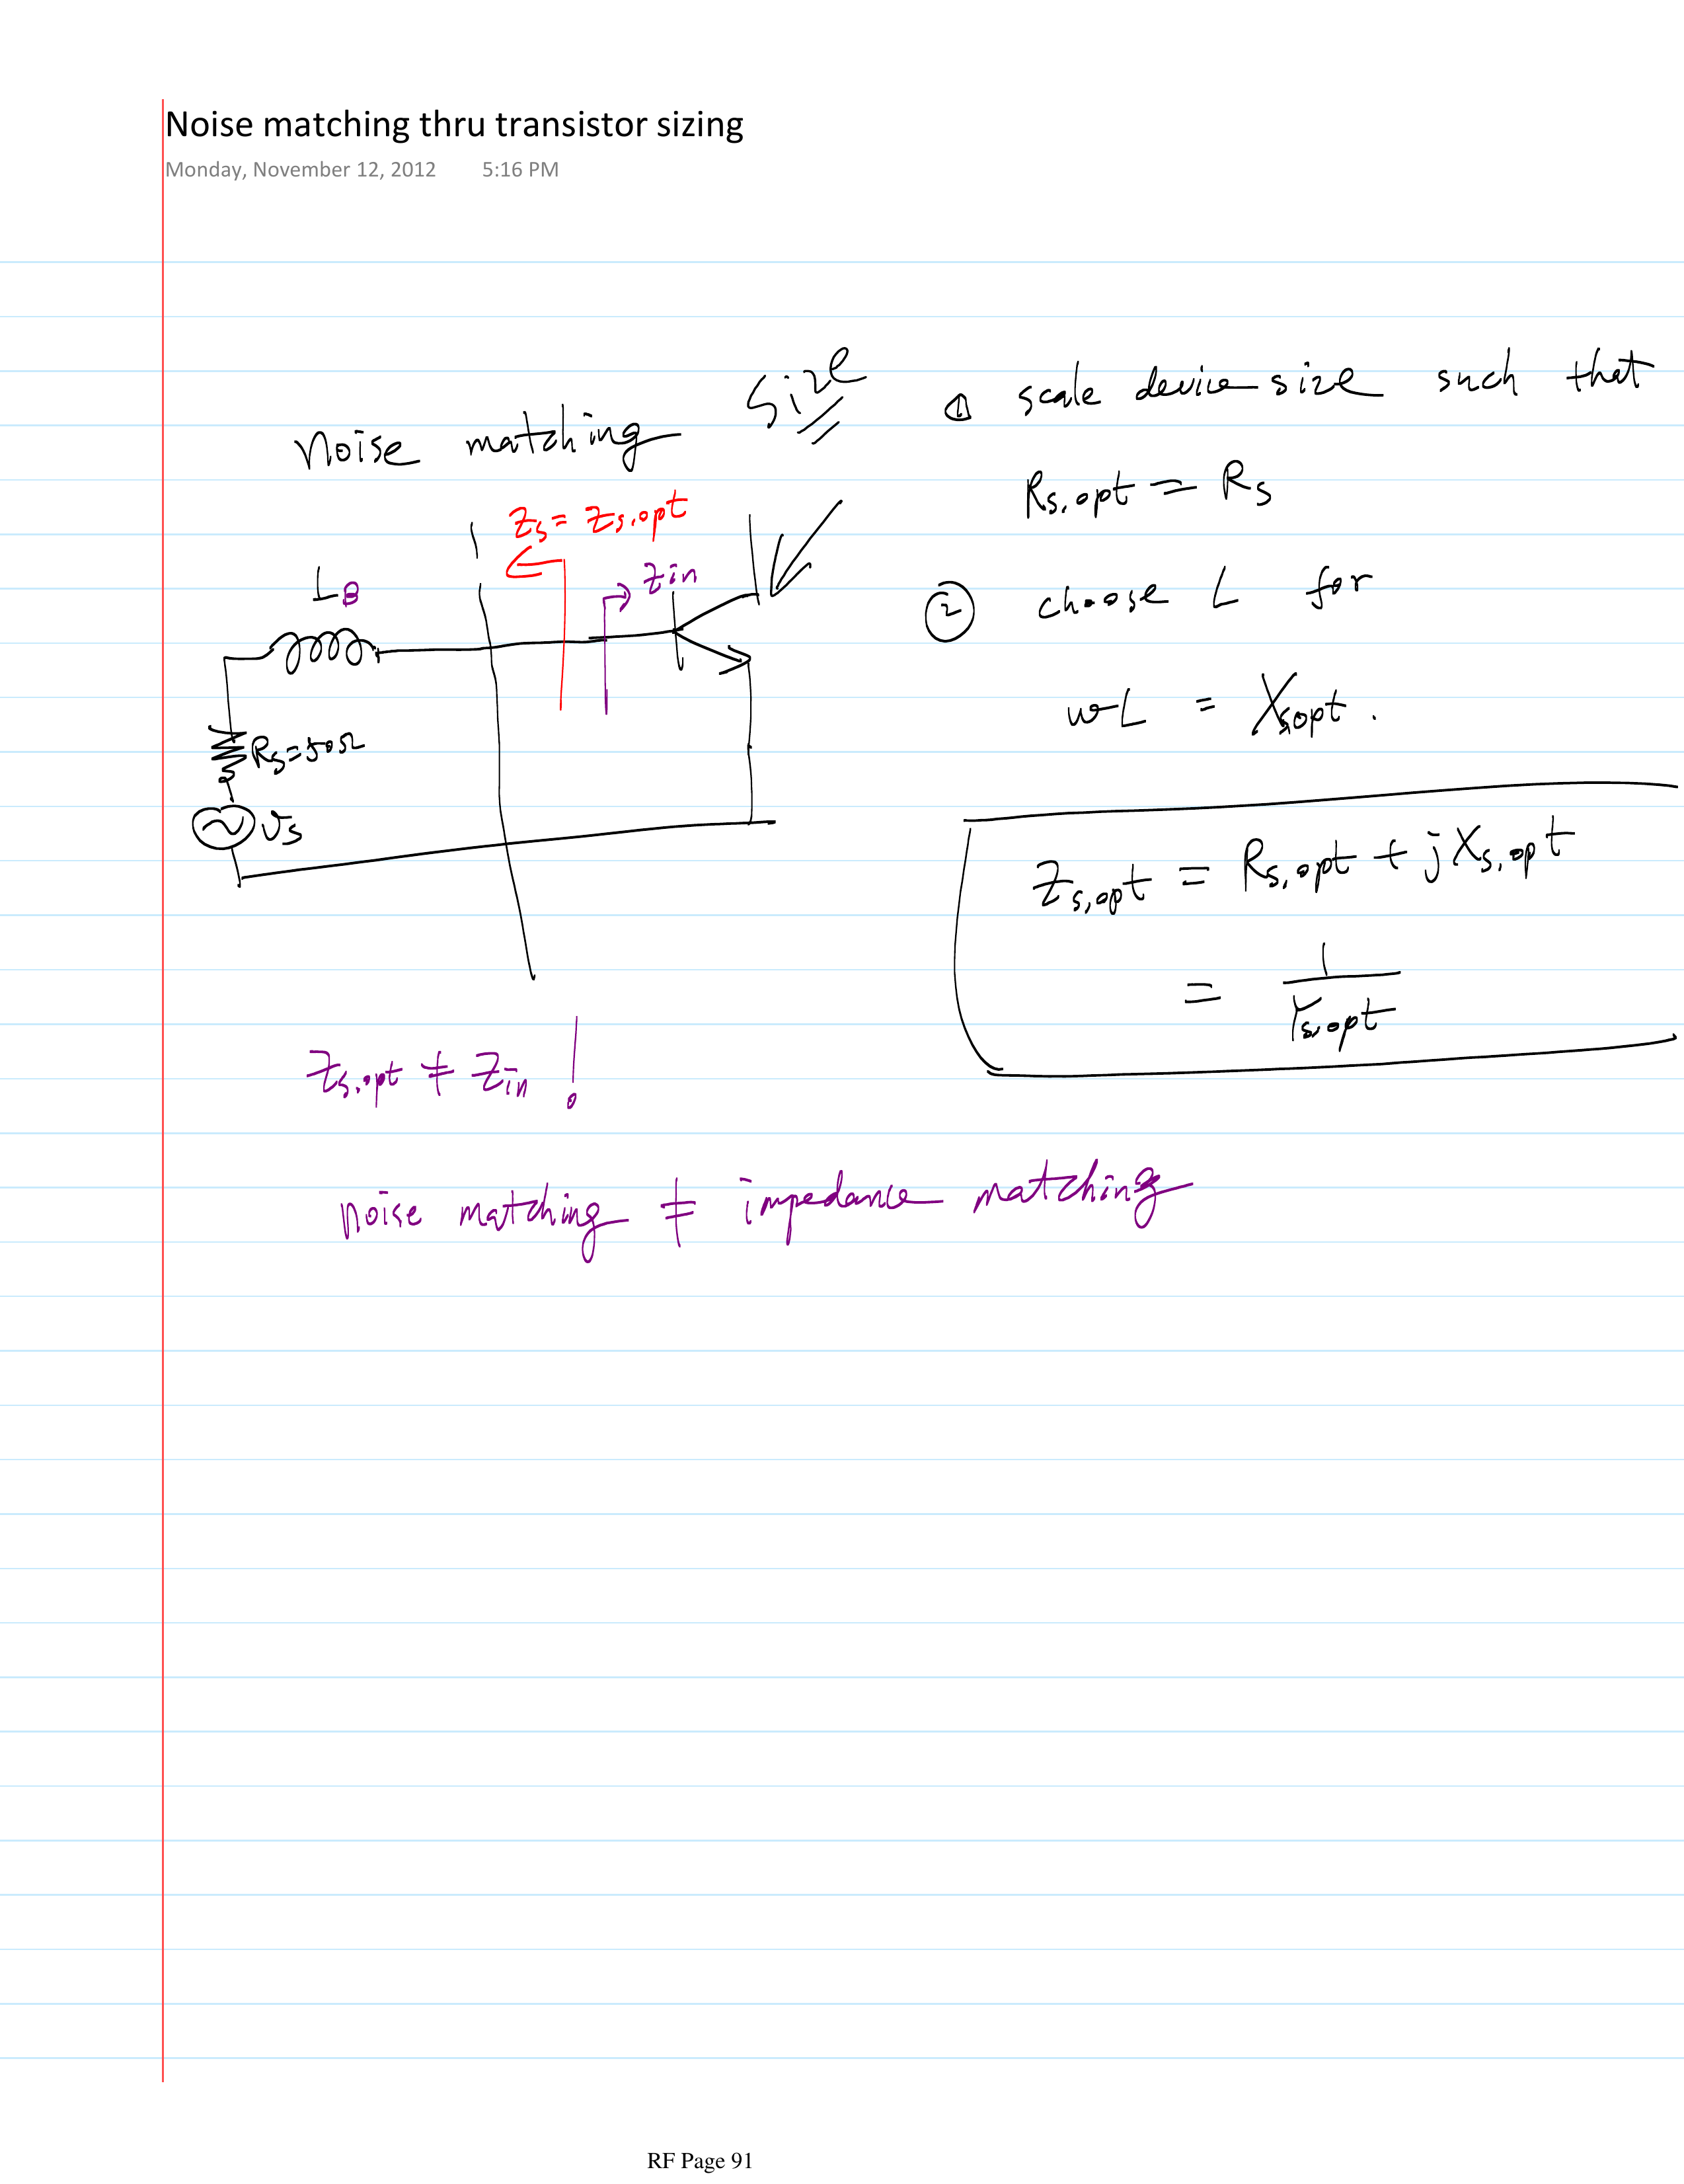 Noise matching thru transistor sizing
Monday, November 12, 2012 5:16 PM
Noise matching
Size
① scale device size such that
Rs,opt = Rs
② choose L for
ωL = Xs,opt .
Zs = Zs,opt
Zin
LB
Rs=50Ω
vs
Zs,opt = Rs,opt + jXs,opt
= 1/Ys,opt
Zs,opt ≠ Zin !
noise matching ≠ impedance matching
RF Page 91